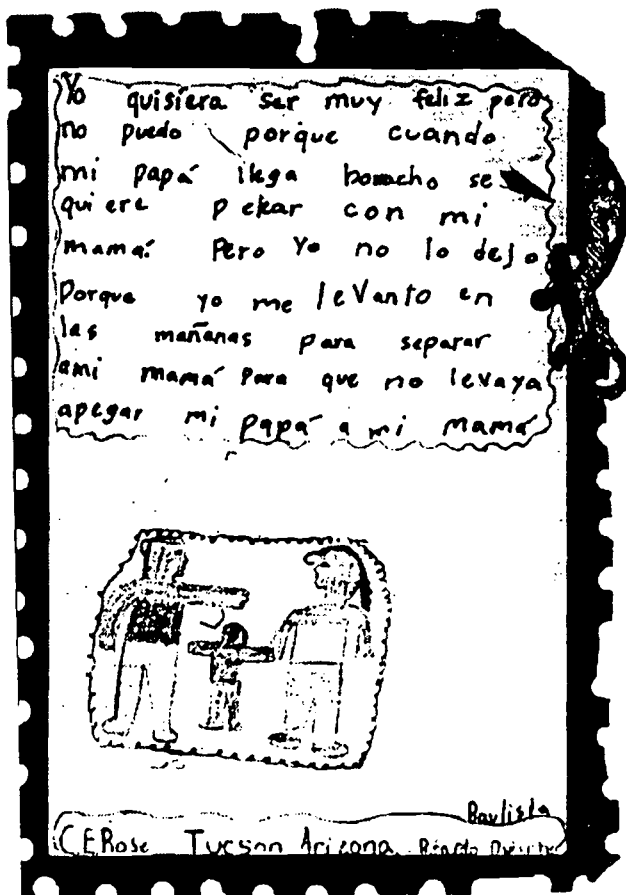 Yo quisiera ser muy feliz pero
no puedo porque cuando
mi papá llega borracho se
quiere pekar con mi
mamá. Pero Yo no lo dejo
Porque yo me leVanto en
las mañanas para separar
ami mamá Para que no levaya
apegar mi papá a mi mamá
Bautista
C.E Rose Tucson Arizona Ricardo